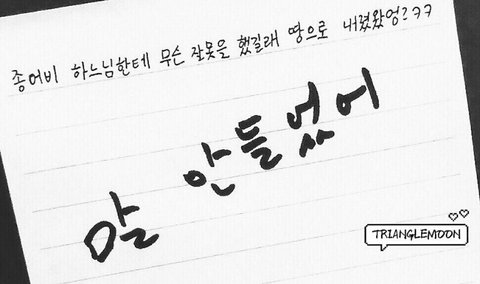 종어비 하느님한테 무슨 잘못을 했길래 땅으로 내려왔엉?ㅋㅋ
말 안들었어
TRIANGLEMOON